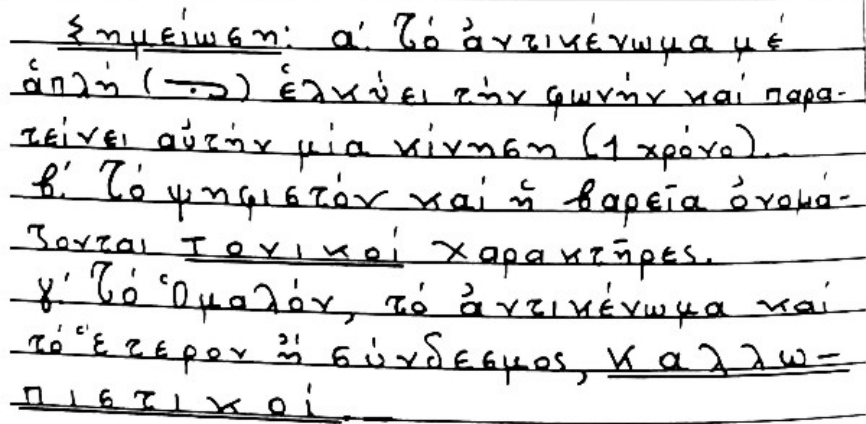 Σημείωση: α΄. Τό ἀντικένωμα μέ
ἁπλή ( ) ἑλκύει τήν φωνήν καί παρα-
τείνει αὐτήν μία κίνηση (1 χρόνο)..
β΄. Τό ψηφιστόν καί ἡ βαρεῖα ὀνομά-
ζονται τονικοί χαρακτῆρες.
γ΄ Τό Ὁμαλόν, τό ἀντικένωμα καί
τό Ἕτερον ἤ σύνδεσμος, καλλω-
πιστικοί.